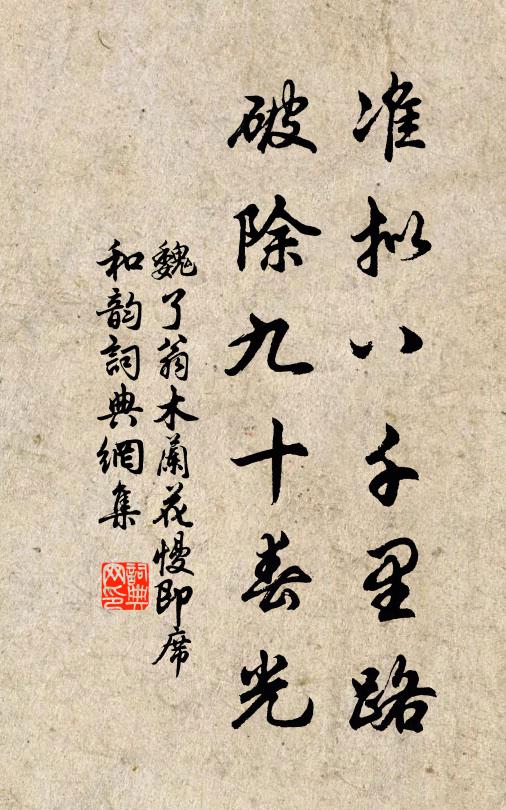 准拟八千里路
破除九十春光
魏了翁木蘭花慢即席
和韵詞典網集
詞典
网印